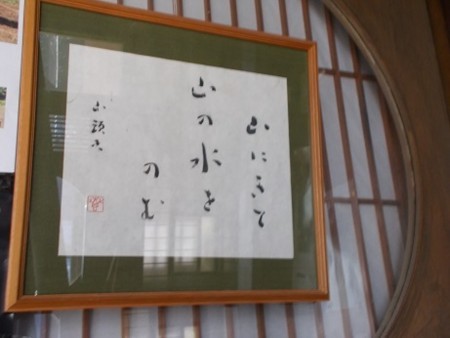 山にきて
山の水を
のむ
山頭火